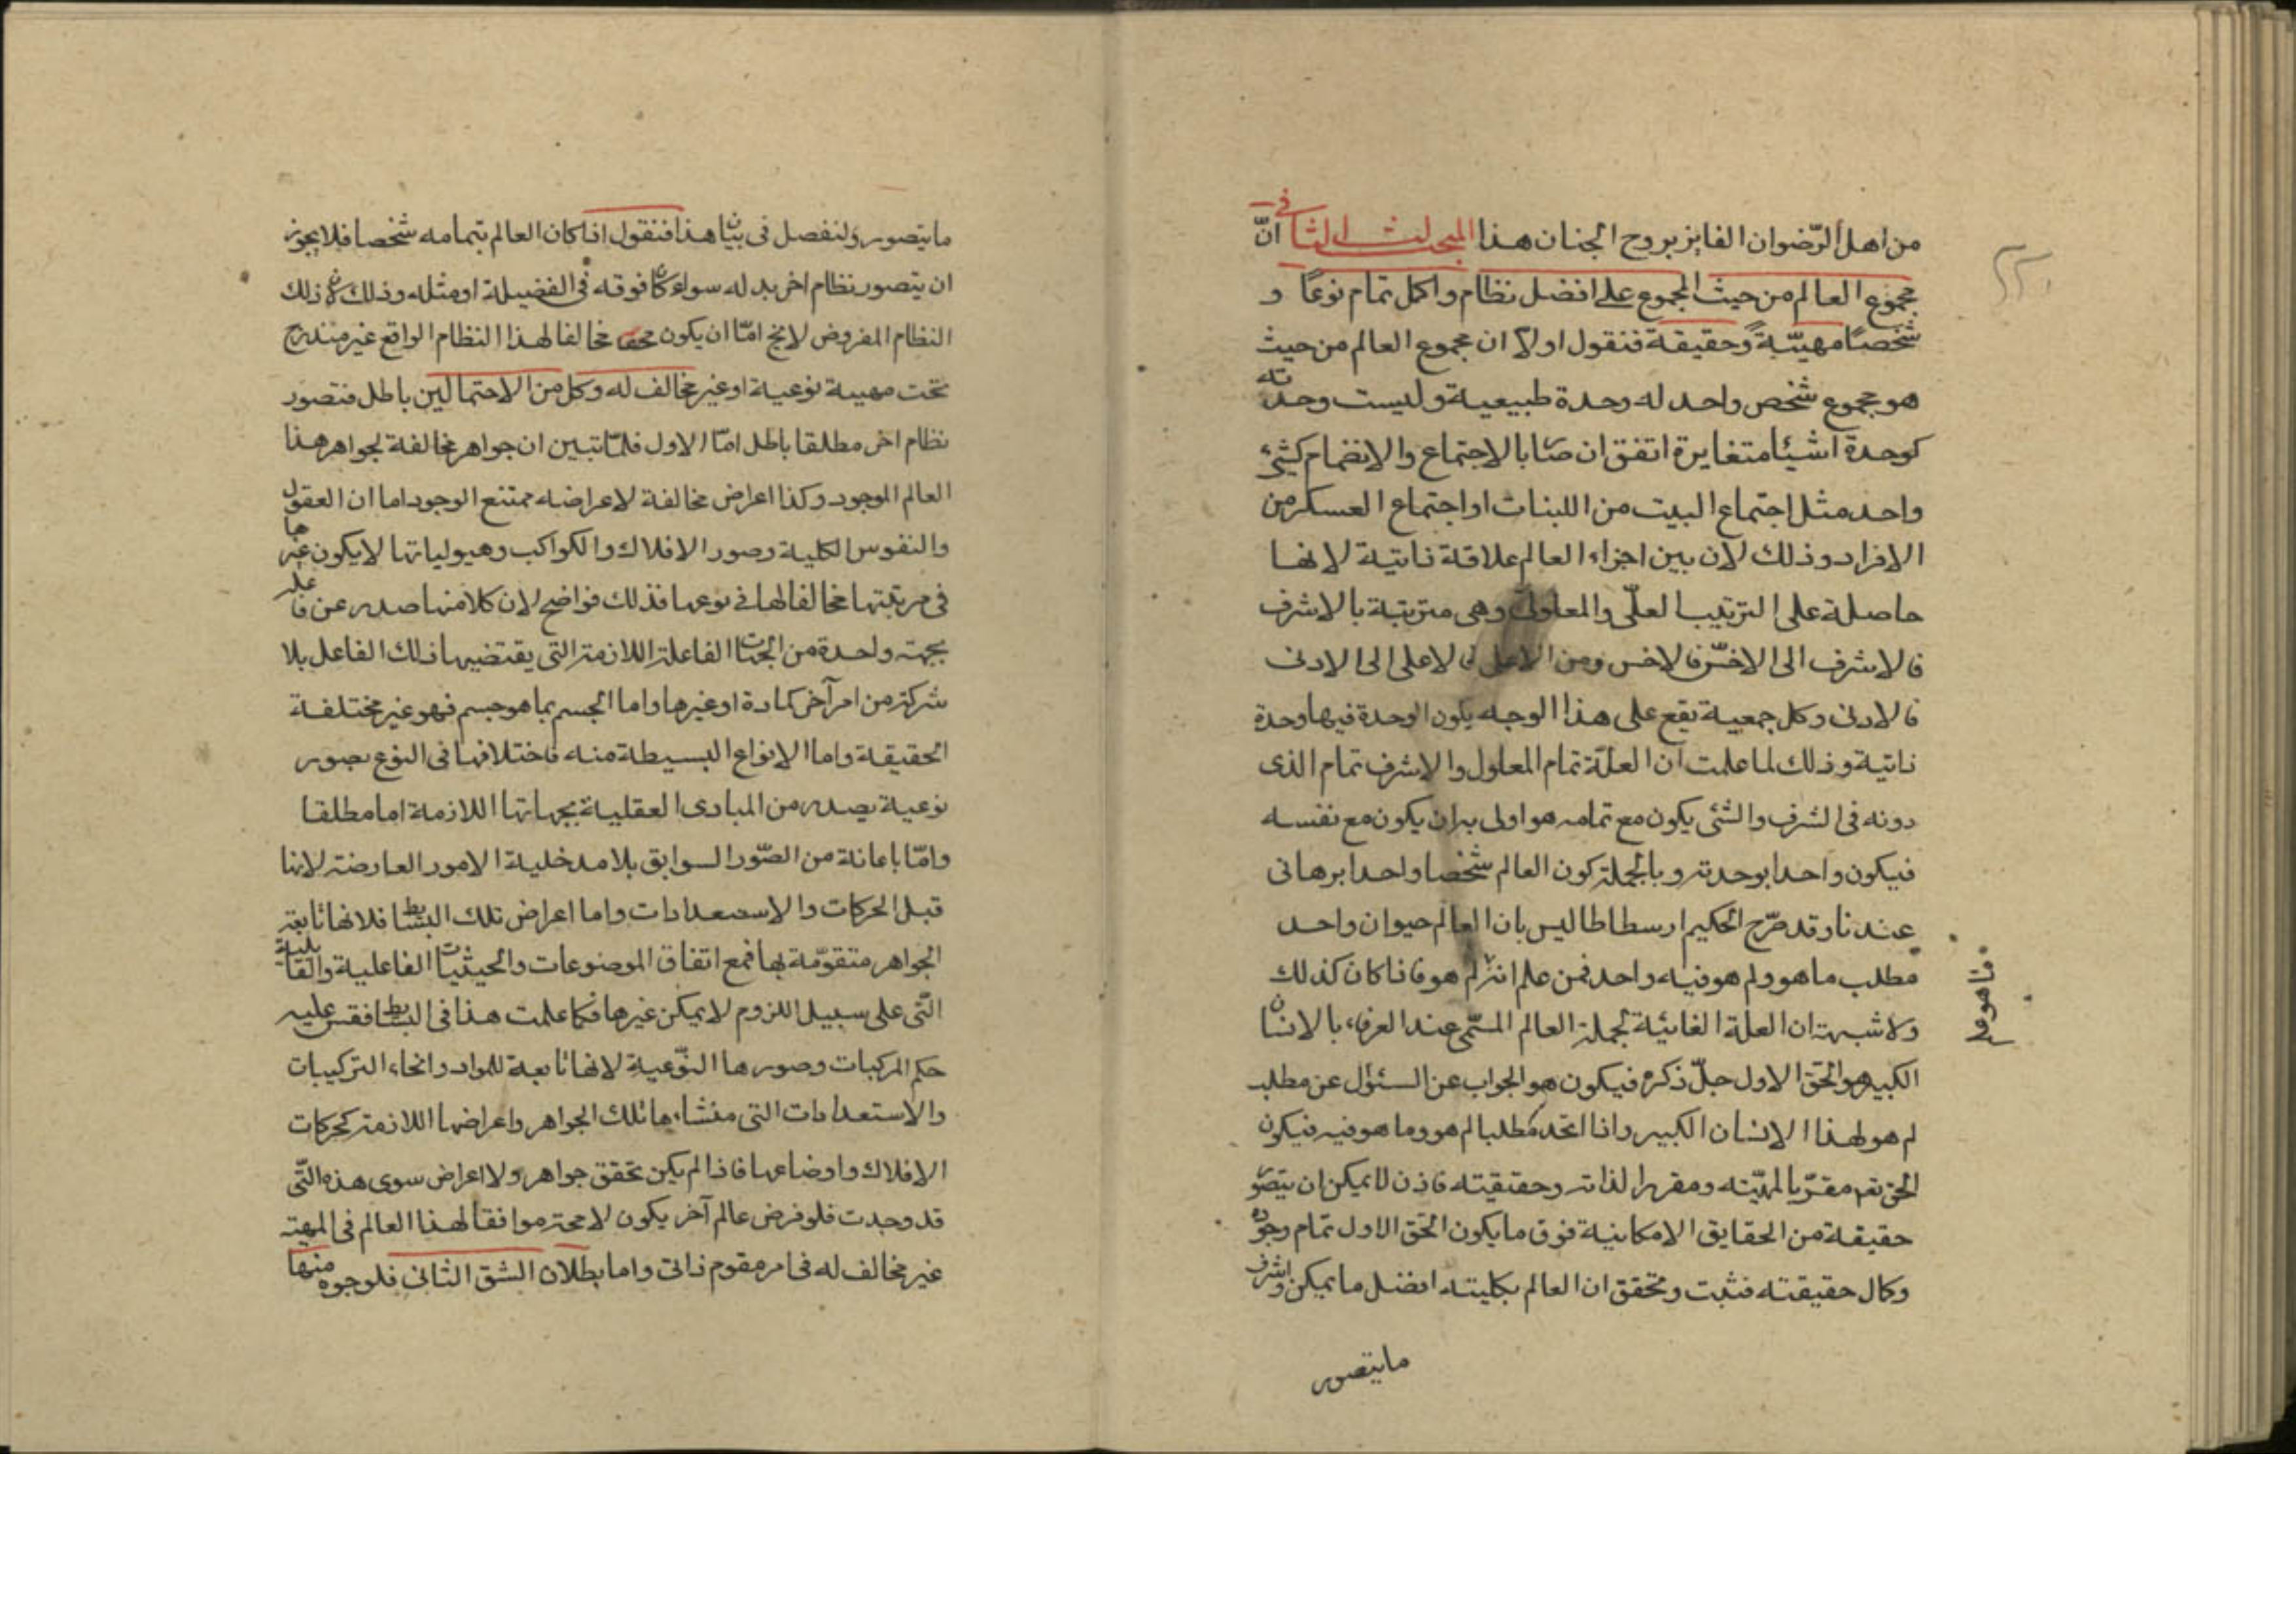 من اهل الرّضوان الفايز بروح الجنان هذا المبحث الثا فى انّ
مجموع العالم من حيث المجموع على افضل نظام واكمل تمام نوعًا و
شخصًا مهيّةً وحقيقة فنقول اولا ان مجموع العالم من حيث
هو مجموع شخص واحد له وحدة طبيعية وليست وحدته
كوحدة اشيئا متغايرة اتفق ان صا بالاجتماع والانضمام كشئ
واحد مثل اجتماع البيت من اللبنات او اجتماع العسكر من
الافراد وذلك لان بين اجزاء العالم علاقة ذاتية لانها
حاصلة على الترتيب العلّى والمعلولى وهى مترتبة بالاشرف
فالاشرف الى الاخسّ فالاخس ومن الاعلى فالاعلى الى الادنى
فالادنى وكل جمعية تقع على هذا الوجه يكون الوحدة فيها وحدة
ذاتية وذلك لما علمت ان العلّة تمام المعلول والاشرف تمام الذى
دونه فى الشرف والشئى يكون مع تمامه هو اولى به ان يكون مع نفسه
فيكون واحدا بوحدته وبالجملة كون العالم شخصا واحدا برهانى
عندنا وقد صرّح الحكيم ارسطاطاليس بان العالم حيوان واحد
مطلب ما هو ولم هو فيه واحد فمن علم انه لم هو فاذا كان كذلك
ما هو فا
ولا شبهة ان العلة الغائية لجملة العالم المسمّى عند العرفاء بالانسان
الكبير هو الحق الاول جلّ ذكره فيكون هو الجواب عن السئول عن مطلب
لم هو لهذا الانسان الكبير واذا اتحد مطلبا لم هو وما هو فيه فيكون
الحق تعم مقرّبا لمهيّته ومقررا لذاته وحقيقته فاذن لا يمكن ان يتصو
حقيقة من الحقايق الامكانية فوق ما يكون الحق الاول تمام وجوده
وكمال حقيقته فثبت وتحقق ان العالم بكليته افضل ما يمكن واشرف
ما يتصور
ما يتصور ولنفصل فى بيان هذا فنقول اذا كان العالم بتمامه شخصا فلا يجوز
ان يتصور نظام اخر بدله سواء كان فوقه فى الفضيلة او مثله وذلك لان ذلك
النظام المفروض لا يخ امّا ان يكون مخالفا لهذا النظام الواقع غير مندرج
تحت مهية نوعية او غير مخالف له وكل من الاحتمالين باطل فتصور
نظام اخر مطلقا باطل امّا الاول فلمّا تبين ان جواهر مخالفة لجواهر هذا
العالم الموجود وكذا اعراض مخالفة لاعراضه ممتنع الوجود اما ان العقول
والنفوس الكلية وصور الافلاك والكواكب وهيولياتها لا يكون غيرها
فى مرتبتها مخالفا لها فى نوعها فذلك فواضح لان كلا منها صدر عن فاعله
بجهة واحدة من الجهات الفاعلة اللازمة التى يقتضيها ذلك الفاعل بلا
شركة من امر آخر كمادة او غيرها واما الجسم بما هو جسم فهو غير مختلفة
الحقيقة واما الانواع البسيطة منه فاختلافها فى النوع بصور
نوعية يصدر من المبادى العقلية بجهاتها اللازمة اما مطلقا
وامّا باعانة من الصّور السوابق بلا مدخلية الامور العارضة لانها
قبل الحركات والاستعدادات واما اعراض تلك البسائط فلانها تابعة
الجواهر متقوّمة بها فمع اتفاق الموضوعات والحيثيات الفاعلية والقابلية
التّى على سبيل اللزوم لا يمكن غيرها فكما علمت هذا فى البسائط فقس عليه
حكم المركبات وصورها النوّعية لانها تابعة للمواد وانحاء التركيبات
والاستعدادات التى منشاءها تلك الجواهر واعراضها اللازمة كحركات
الافلاك واوضاعها فاذا لم يكن تحقق جواهر ولا اعراض سوى هذه التّى
قد وجدت فلو فرض عالم آخر يكون لا محة موافقا لهذا العالم فى المهية
غير مخالف له فى امر مقوم ذاتى واما بطلان الشق الثانى فلوجوه منها